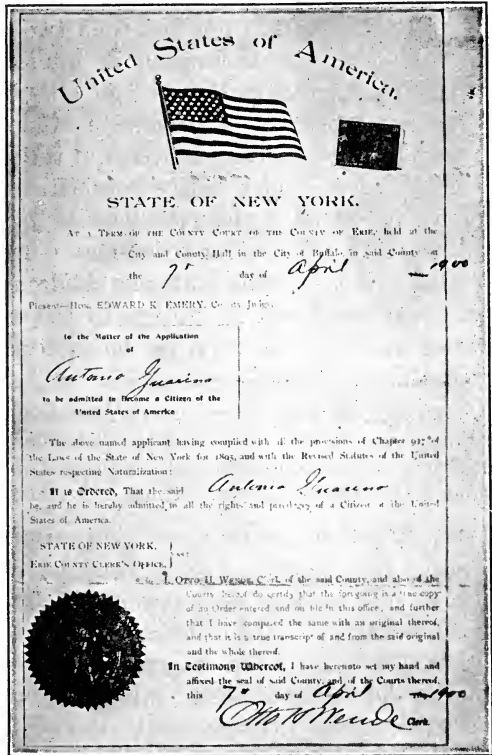 United States of America.
STATE OF NEW YORK.
AT A TERM OF THE COUNTY COURT OF THE COUNTY OF ERIE, held at the
City and County Hall in the City of Buffalo, in said County on
the 7th day of April 1900
Present—Hon. EDWARD K. EMERY, County Judge.
In the Matter of the Application
of
Antonio Guarino
to be admitted to Become a Citizen of the
United States of America
The above named applicant having complied with all the provisions of Chapter 927 of
the Laws of the State of New York for 1895, and with the Revised Statutes of the United
States respecting Naturalization:
It is Ordered, That the said Antonio Guarino
be, and he is hereby admitted to all the rights and privileges of a Citizen of the United
States of America.
STATE OF NEW YORK,
ERIE COUNTY CLERK'S OFFICE, } ss:
I, OTTO H. WENDE, Clerk of the said County, and also of the
Courts thereof do certify that the foregoing is a true copy
of an Order entered and on file in this office, and further
that I have compared the same with an original thereof,
and that it is a true transcript of and from the said original
and the whole thereof.
In Testimony Whereof, I have hereunto set my hand and
affixed the seal of said County, and of the Courts thereof,
this 7th day of April 1900
Otto H Wende Clerk.